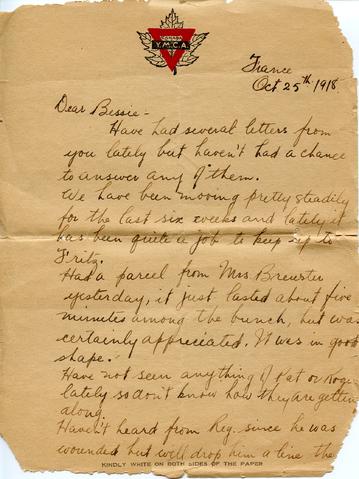 Y.M.C.A.
France
Oct 25th 1918.
Dear Bessie -
Have had several letters from
you lately but haven't had a chance
to answer any of them.
We have been moving pretty steadily
for the last six weeks and lately it
has been quite a job to keep up to
Fritz.
Had a parcel from Mrs Brewster
yesterday, it just lasted about five
minutes among the bunch, but was
certainly appreciated. It was in good
shape.
Have not seen anything of Pat or
lately so don't know how they are getting
along.
Haven't heard from Reg. since he was
wounded but will drop him a line the
KINDLY WRITE ON BOTH SIDES OF THE PAPER